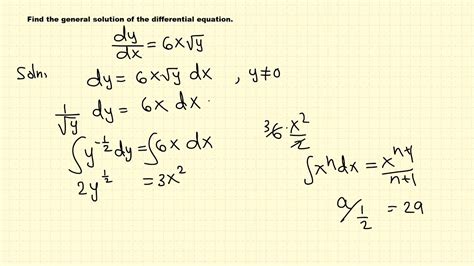 Find the general solution of the differential equation.
dy/dx = 6x√y
Soln: dy = 6x√y dx , y≠0
1/√y dy = 6x dx
∫y^(-1/2) dy = ∫6x dx
2y^(1/2) = 3x²
3 6 · x²/2
∫xⁿdx = x^(n+1)/(n+1)
a/(1/2) = 2a